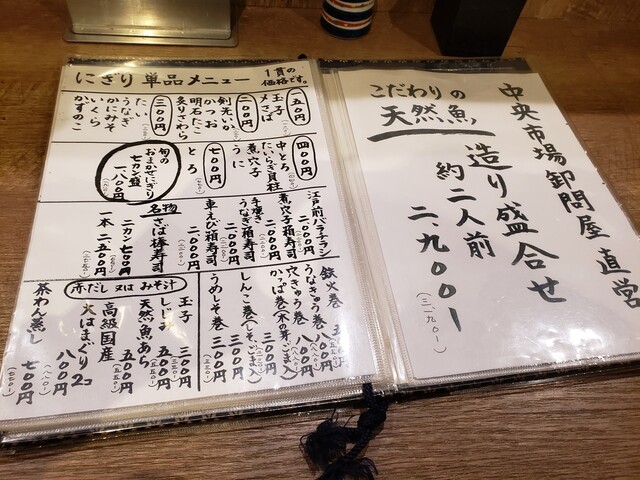 にぎり 単品メニュー
1貫の
価格です。
五〇円
玉子
〆さば
二〇〇円
剣先いか
かつお
明石だこ
炙りさわら
三〇〇円
たい
うなぎ
かにみそ
いくら
かずのこ
四〇〇円
中とろ
たいらぎ貝柱
煮穴子
うに
七〇〇円
とろ
旬の
おまかせにぎり
七カン盛
一、八〇〇円
江戸前バラチラシ
二、〇〇〇円
煮穴子箱寿司
二、〇〇〇円
手焼き
うなぎ箱寿司
二、〇〇〇円
車えび箱寿司
二、〇〇〇円
名物
さば棒寿司
二カン 七〇〇円
一本 二、二〇〇円
鉄火巻
うなきゅう巻
穴きゅう巻 八〇〇円
かっぱ巻(木の芽、ごま入)
三〇〇円
しんこ巻(しそ、ごま入)
三〇〇円
うめしそ巻 三〇〇円
赤だし 又は みそ汁
玉子 三〇〇円
しじみ
天然魚あら 五〇〇円
高級国産
火はまぐり2コ
八〇〇円
茶わん蒸し 七〇〇円
中央市場卸問屋 直営
こだわりの
天然魚
造り盛合せ
約二人前
二、九〇〇ー
(三一九〇ー)